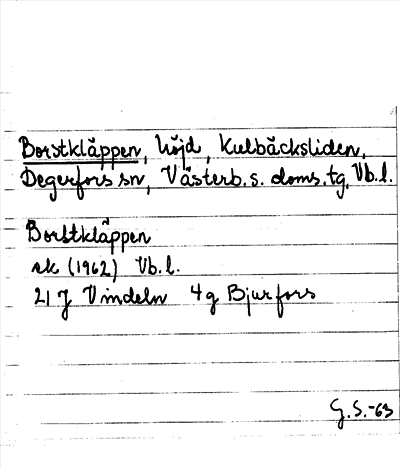 Borstkläppen, höjd, Kulbäcksliden,
Degerfors sn, Västerb. s. doms. tg, Vb. l.
Borstkläppen
ek (1962) Vb. l.
21 J Vindeln 4 g Bjurfors
G. S. -63